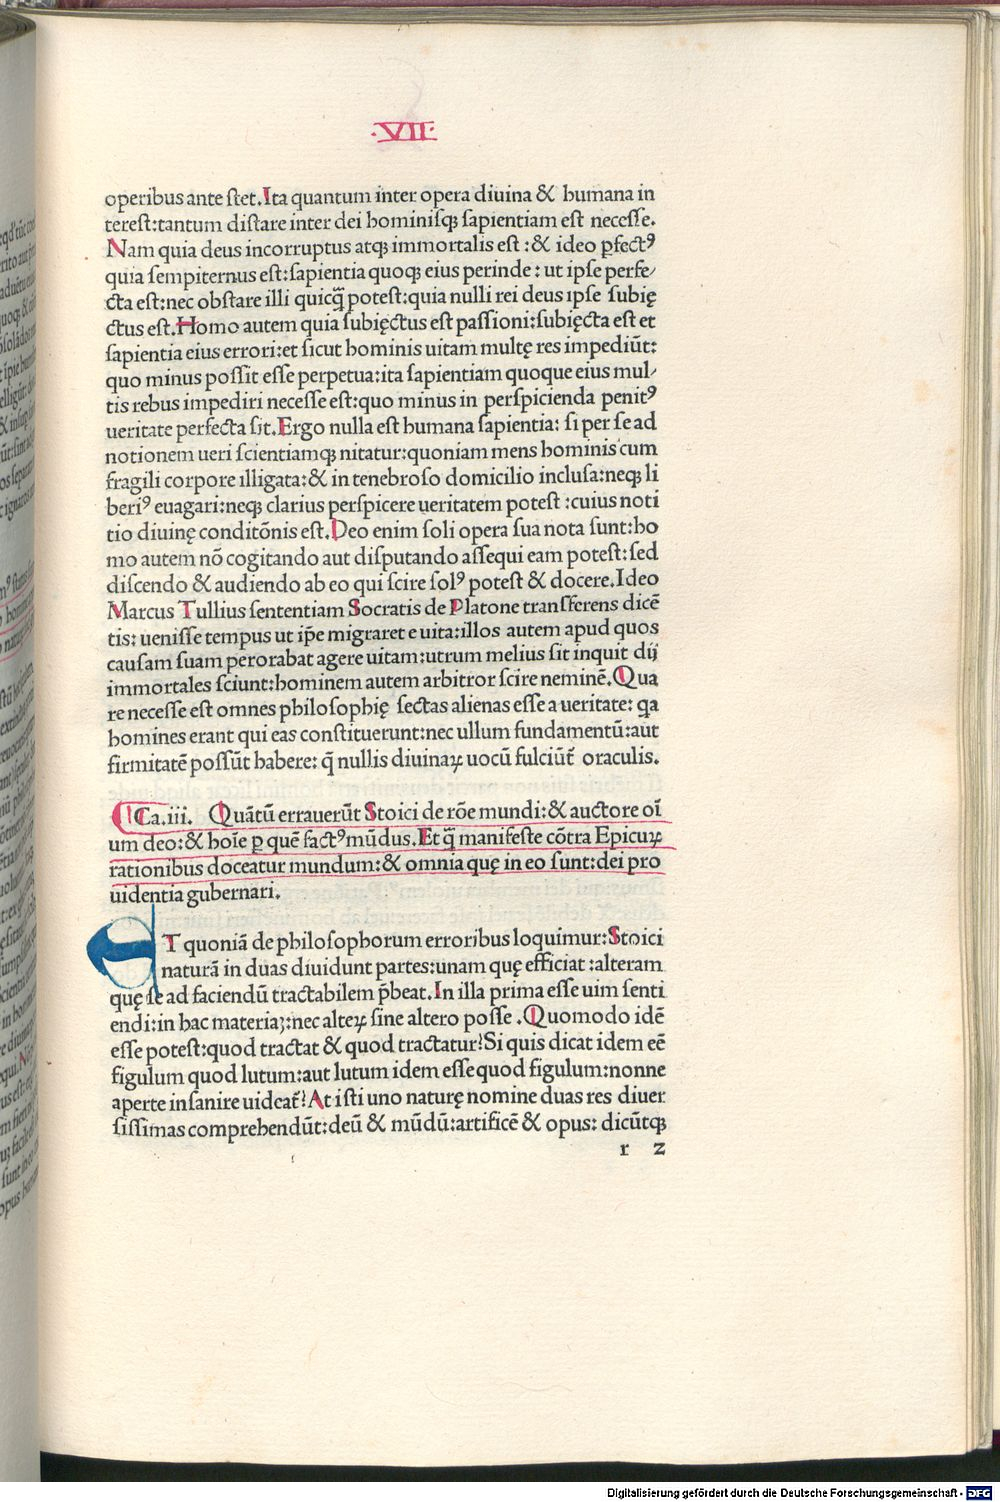 ·VII·
operibus ante ſtet. Ita quantum inter opera diuina & humana in
tereſt:tantum diſtare inter dei hominiſqꝫ ſapientiam eſt neceſſe.
Nam quia deus incorruptus atqꝫ immortalis eſt :& ideo ꝑfectꝰ
quia ſempiternus eſt:ſapientia quoqꝫ eius perinde : ut ipſe perfe/
cta eſt:nec obſtare illi quicq̄ꝫ poteſt:quia nulli rei deus ipſe ſubię
ctus eſt.Homo autem quia ſubięctus eſt paſſioni:ſubięcta eſt et
ſapientia eius errori:et ſicut hominis uitam multę res impediūt:
quo minus poſſit eſſe perpetua:ita ſapientiam quoque eius mul/
tis rebus impediri neceſſe eſt:quo minus in perſpicienda penitꝰ
ueritate perfecta ſit.Ergo nulla eſt humana ſapientia: ſi per ſe ad
notionem ueri ſcientiamqꝫ nitatur:quoniam mens hominis cum
fragili corpore illigata:& in tenebroſo domicilio incluſa:neqꝫ li
beriꝰ euagari:neqꝫ clarius perſpicere ueritatem poteſt :cuius noti
tio diuinę conditōnis eſt.Deo enim ſoli opera ſua nota ſunt:ho
mo autem nō cogitando aut diſputando aſſequi eam poteſt:ſed
diſcendo & audiendo ab eo qui ſcire ſolꝰ poteſt & docere.Ideo
Marcus Tullius ſententiam Socratis de Platone tranſferens dicē
tis: ueniſſe tempus ut ip̄e migraret e uita:illos autem apud quos
cauſam ſuam perorabat agere uitam:utrum melius ſit inquit dij
immortales ſciunt:hominem autem arbitror ſcire neminē.Qua
re neceſſe eſt omnes philoſophię ſectas alienas eſſe a ueritate: qa
homines erant qui eas conſtituerunt:nec ullum fundamentū:aut
firmitatē poſſūt habere: q̄ nullis diuinaꝝ uocū fulciūt̄ oraculis.
Ca.iii. Quātū errauerūt Stoici de rōe mundi:& auctore oī
um deo:& hoīe ꝑ quē factꝰ mūdus.Et q̄ manifeſte cōtra Epicuꝝ
rationibus doceatur mundum:& omnia quę in eo ſunt:dei pro
uidentia gubernari.
ET quoniā de philoſophorum erroribus loquimur:Stoici
naturā in duas diuidunt partes:unam quę efficiat :alteram
quę ſe ad faciendū tractabilem p̄beat.In illa prima eſſe uim ſenti
endi:in hac materiaꝫ:nec alteꝝ ſine altero poſſe .Quomodo idē
eſſe poteſt:quod tractat & quod tractatur?Si quis dicat idem eē
figulum quod lutum:aut lutum idem eſſe quod figulum:nonne
aperte inſanire uideat̄?At iſti uno naturę nomine duas res diuer
ſiſſimas comprehendūt:deū & mūdū:artificē & opus: dicūtqꝫ
r 2
Digitalisierung gefördert durch die Deutsche Forschungsgemeinschaft - DFG